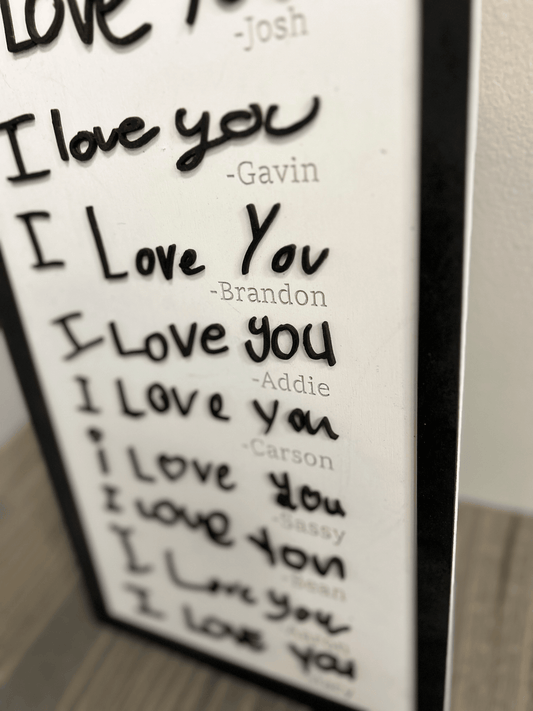 Love You
-Josh
I love you
-Gavin
I Love You
-Brandon
I Love you
-Addie
I Love you
-Carson
i Love you
-Sassy
I Love You
-Sean
I Love you
I Love you